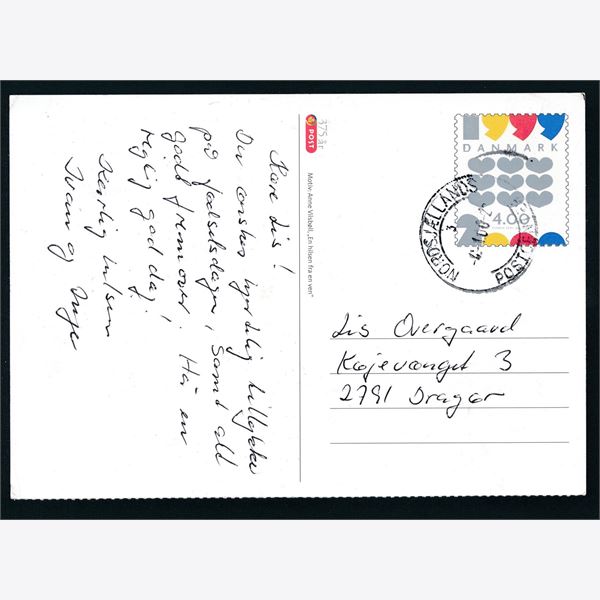 Kære Lis!
Du ønskes hjertelig tillykke
på fødselsdagen, samt alt
godt fremover. Ha en
rigtig god dag.
Kærlig hilsen
Svein og Inge
375 år
POST
Motiv: Anne Vilsbøll, "En hilsen fra en ven"
1999
DANMARK
4.00
2
NORDSJÆLLANDS
POSTCE
Lis Overgaard
Køjevænget 3
2791 Dragør